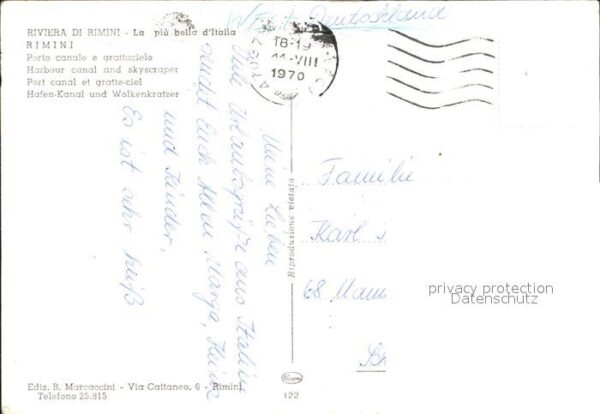 West-Deutschland
RIVIERA DI RIMINI - La più bella d'Italia
RIMINI
Porto canale e grattacielo
Harbour canal and skyscraper
Port canal et gratte-ciel
Hafen-Kanal und Wolkenkratzer
18-19
VIII
1970
Meine Lieben
Viele Urlaubsgrüße aus Italien
sendet Euch Allen Marga, Heinz
und Kinder,
Es ist sehr heiß
Riproduzione vietata
Familie
Karl
68 Mann
privacy protection
Datenschutz
Ediz. B. Marcaccini - Via Cattaneo, 6 - Rimini
Telefono 25.815
122